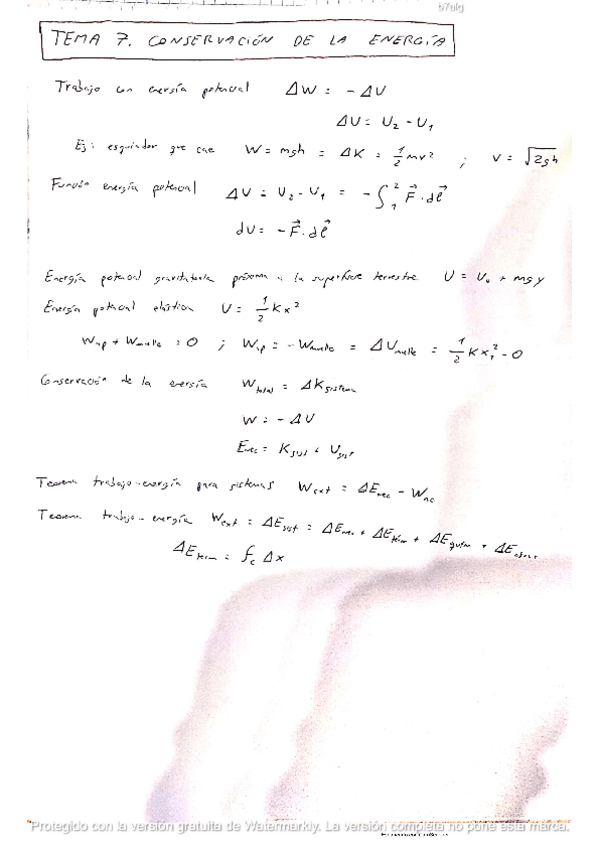 b7ulg
TEMA 7. CONSERVACIÓN DE LA ENERGÍA
Trabajo con energía potencial ΔW = - ΔU
ΔU = U₂ - U₁
Ej: esquiador que cae W = mgh = ΔK = 1/2 mv² ; v = √2gh
Función energía potencial ΔU = U₂ - U₁ = - ∫₁² F⃗ · dℓ⃗
dU = - F⃗ · dℓ⃗
Energía potencial gravitatoria próxima a la superficie terrestre U = U₀ + mgy
Energía potencial elástica U = 1/2 Kx²
W + Wmuelle = 0 ; W = - Wmuelle = ΔUmuelle = 1/2 Kx₁² - 0
Conservación de la energía Wtotal = ΔKsistema
W = - ΔU
Emec = Ksist + Usist
Teorema trabajo-energía para sistemas Wext = ΔEmec - Wnc
Teorema trabajo-energía Wext = ΔEsist = ΔEmec + ΔEtérm + ΔEquím + ΔE
ΔEterm = fc Δx
Protegido con la versión gratuita de Watermarkly. La versión completa no pone esta marca.